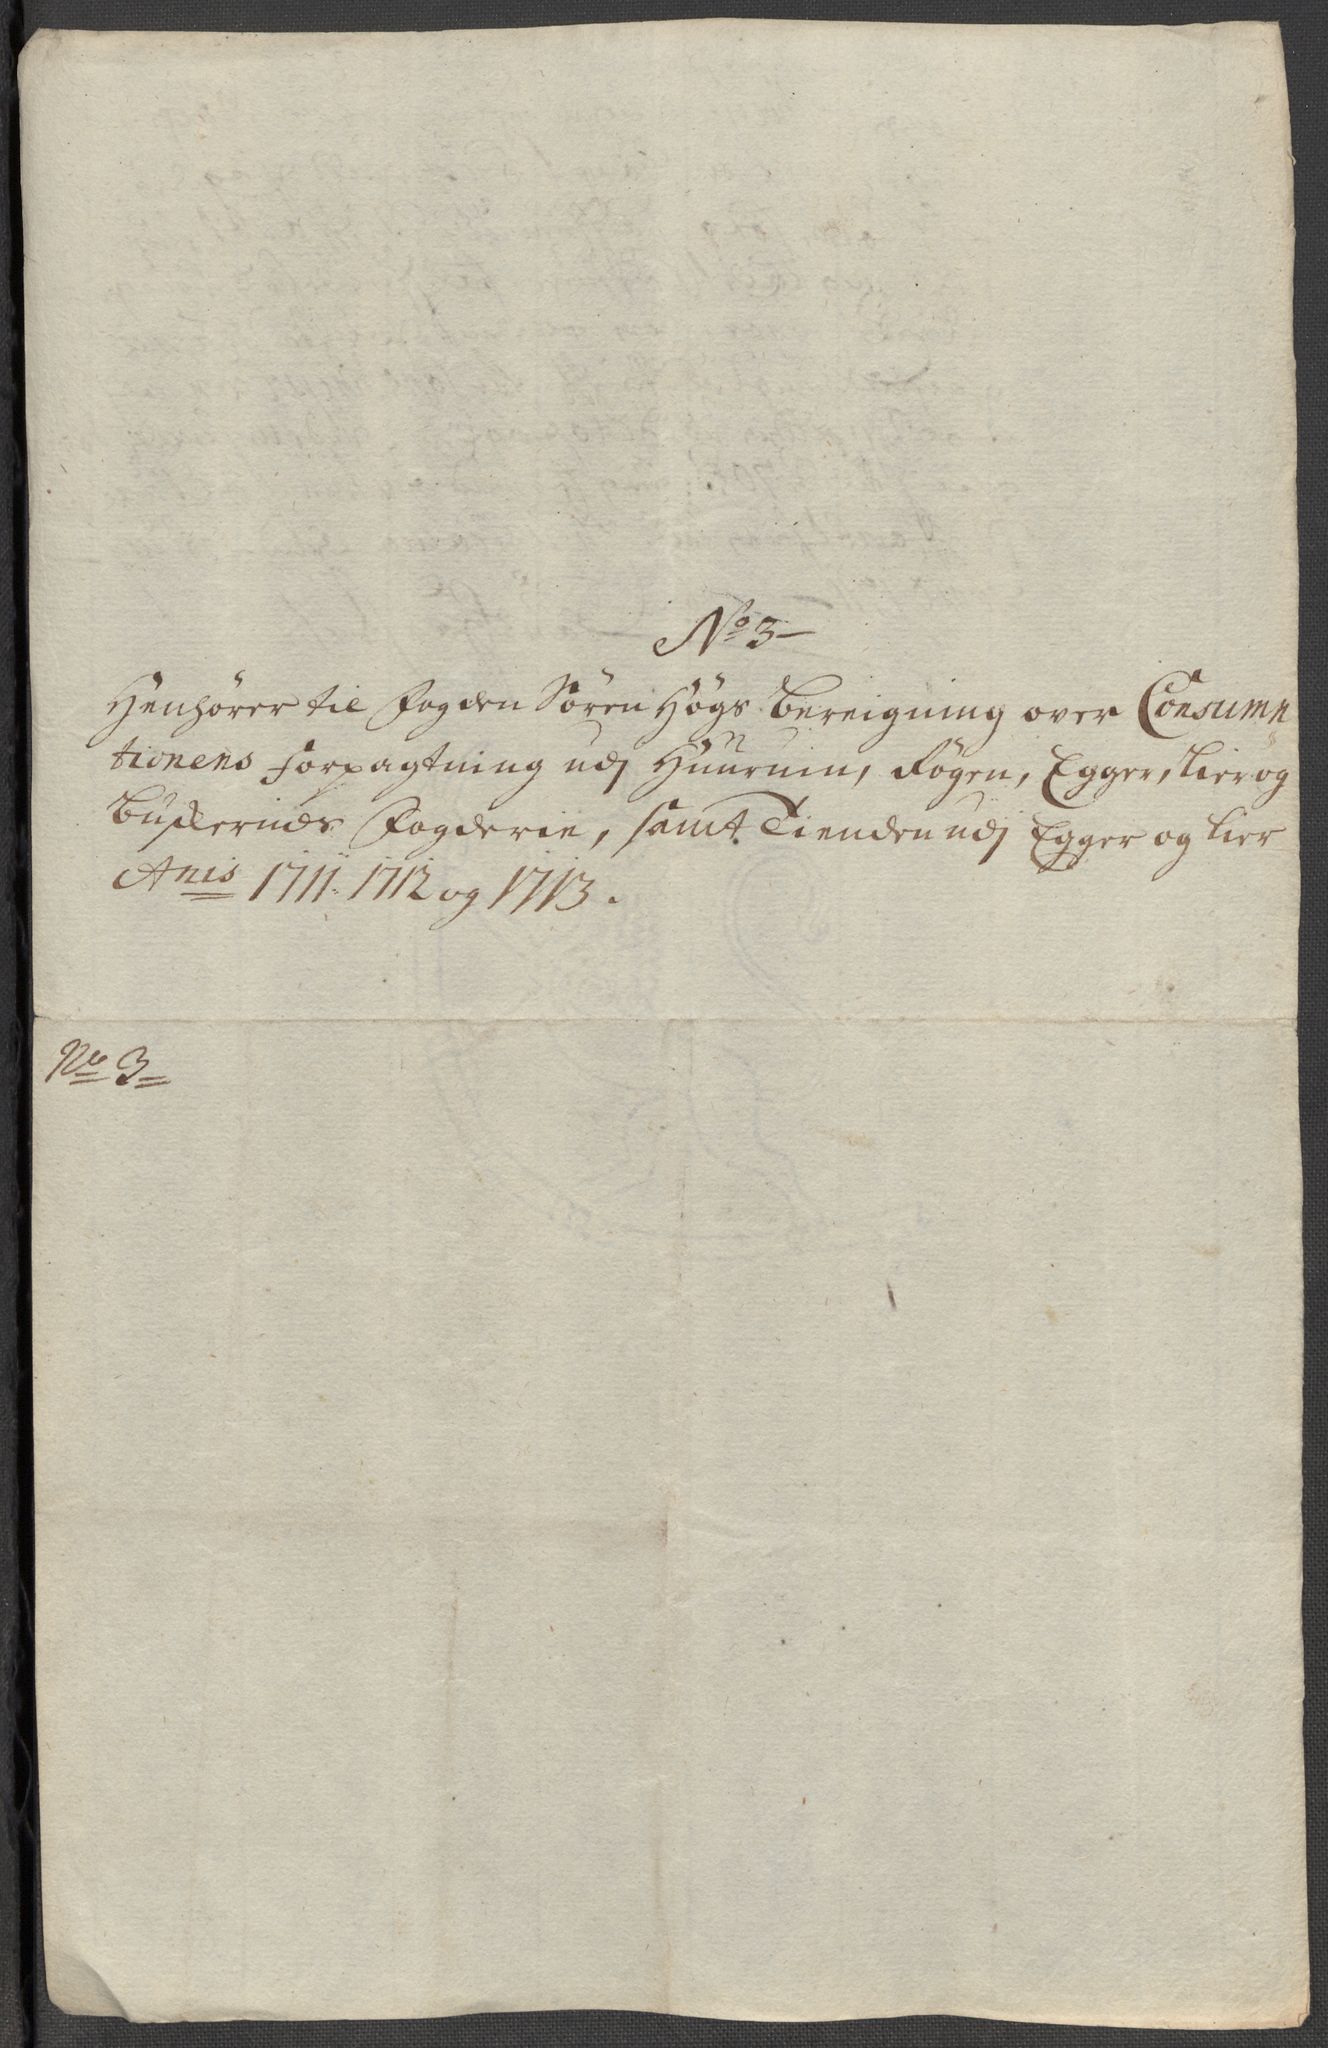 No 3
Henhører til Fogden Søren Høgs Bereigning over Consump
tionens Forpagtning udj Huurum, Røgen, Egger, Lier og
Buskeruds Fogderie, samt Tienden udj Egger og Lier
Anis 1711. 1712 og 1713.
No 3